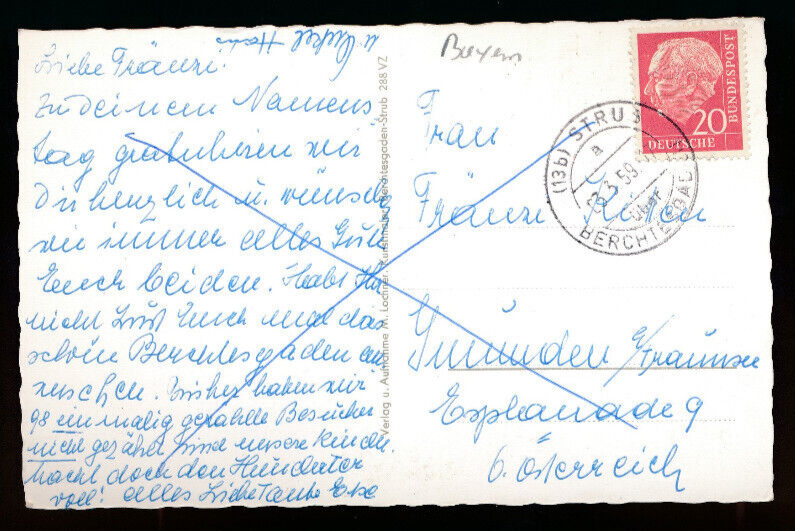 u. Onkel Hans
Liebe Fränzi.
Zu deinem Namens
tag gratulieren wir
Dir herzlich u. wünschen
wie immer alles Gute
Euch beiden. Habt Ihr
nicht Lust Euch mal das
schöne Berchtesgaden an
zuschen. Bisher haben wir
98 einmalig gezahlte Besucher
nicht gezählt sind unsere Kinder.
Macht doch den Hunderter
voll! Alles Liebe Tante Else
Verlag u. Aufnahme M. Lochner, Kunsthandlg. Berchtesgaden-Strub 288 VZ
Bayern
Frau
Fränzi
Gmunden a/Traunsee
Esplanade 9
Österreich
20
DEUTSCHE
BUNDESPOST
(13b) STRUB
a
3.59
über
BERCHTESGADEN